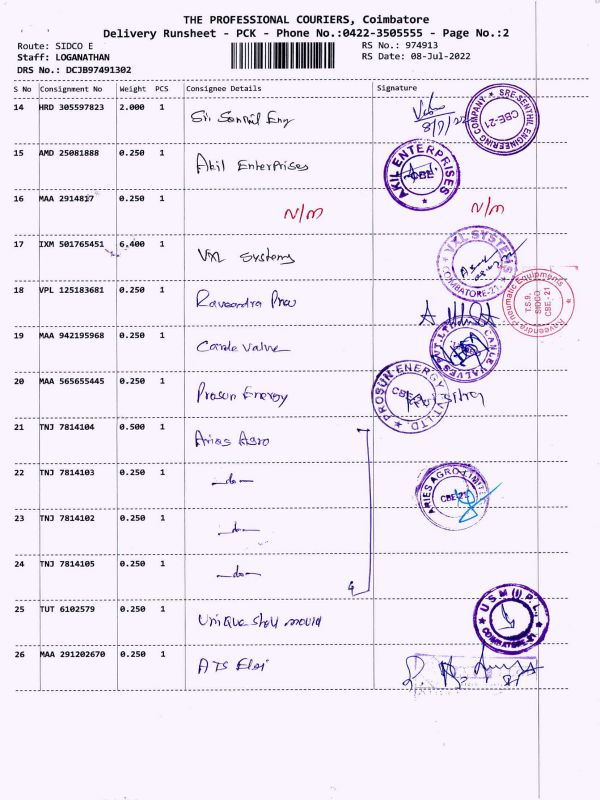 THE PROFESSIONAL COURIERS, Coimbatore
Delivery Runsheet - PCK - Phone No.:0422-3505555 - Page No.:2
Route: SIDCO E
RS No.: 974913
Staff: LOGANATHAN
RS Date: 08-Jul-2022
DRS No.: DCJB97491302
S No Consignment No Weight PCS Consignee Details Signature
14 HRD 305597823 2.000 1 Sri Senthil Eng 8/7/22 SRE-SENTHIL ENGINEERING COMPANY CBE-21
15 AMD 25081888 0.250 1 Akil Enterprises AKIL ENTERPRISES CBE
16 MAA 2914817 0.250 1 N/M N/M
17 IXM 501765451 6.400 1 VXL Systems VXL SYSTEMS COIMBATORE-21.
18 VPL 125183681 0.250 1 Raveendra Pneu Raveendra Pneumatic Equipments T.S.9, SIDCO CBE-21
19 MAA 942195968 0.250 1 Canle Valve CANLE VALVES PVT. LTD
20 MAA 565655445 0.250 1 Prosun Energy PROSUN ENERGY PVT. LTD. CBE
21 TNJ 7814104 0.500 1 Aries Agro
22 TNJ 7814103 0.250 1 -do- ARIES AGRO LIMITED CBE-21
23 TNJ 7814102 0.250 1 -do-
24 TNJ 7814105 0.250 1 -do-
25 TUT 6102579 0.250 1 Unique Shell mould U S M (I) P. L., COIMBATORE-21
26 MAA 291202670 0.250 1